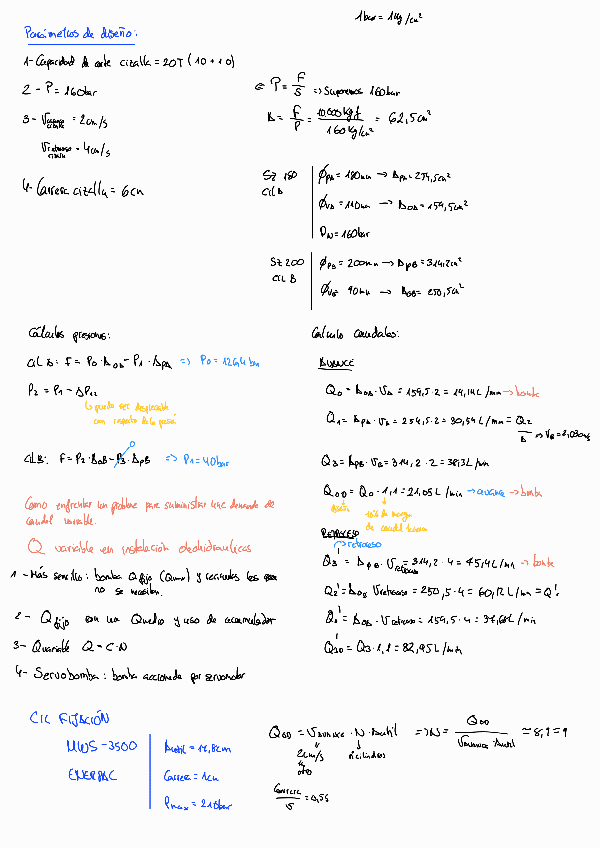 1bar = 1kg/cm²
Parámetros de diseño:
1- Capacidad de corte cizalla = 20T (10+10)
2 - P = 160bar
P = F/S => Suponemos 160bar
A = F/P = 10000kgf / 160kg/cm² = 62,5cm²
3 - Vavance cizalla = 2cm/s
Vretroceso cizalla = 4cm/s
4- Carrera cizalla = 6cm
SZ 180
CIL A
ØPA = 180mm → APA = 254,5cm²
ØVA = 110mm → AOA = 159,5cm²
PN = 160bar
SZ 200
CIL B
ØPB = 200mm → APB = 314,2cm²
ØVB 90mm → AOB = 250,5cm²
Cálculos presiones:
CIL A: F = P0 · AOA - P1 · APA => P0 = 126,4 bar
P2 = P1 - ΔP12
puede ser despreciable
con respecto de la
CIL B: F = P2 · AOB - P3 · APB => P1 = 40bar
0
Como enfrentar un problema para suministrar una demanda de
caudal variable.
Q variable en instalación oleohidraulicas
1 - Más sencillo: bomba Q fijo (Qmax) y
no se necesitan.
2 - Q fijo con un Qmedio y uso de acumulador
3 - Qvariable Q = C · N
4- Servobomba: bomba accionada por servomotor
Cálculo caudales:
AVANCE
Q0 = AOA · VA = 159,5 · 2 = 19,14L/min → bomba
Q1 = APA · VA = 254,5 · 2 = 30,54L/min = Q2
Q3 = APB · VB = 314,2 · 2 = 38,3L/min
Q00 = Q0 · 1,1 = 21,05L/min → avance → bomba
10% de margen
de caudal
RETROCESO
→ retroceso
Q3' = APB · Vretroceso = 314,2 · 4 = 75,4L/min → bomba
Q2' = AOB Vretroceso = 250,5 · 4 = 60,12L/min = Q'1
Q0' = AOA · Vretroceso = 159,5 · 4 =
Q30' = Q3 · 1,1 = 82,95L/min
CIL FIJACIÓN
MWS-3500
ENERPAC
Autil = 17,8cm
Carrera = 1cm
Pmax = 210bar
Q00 = Vavance · N · Autil => N = Q00 / Vavance · Autil = 8,9 = 9
2cm/s
nºcilindros
Carrera / V = 0,5s